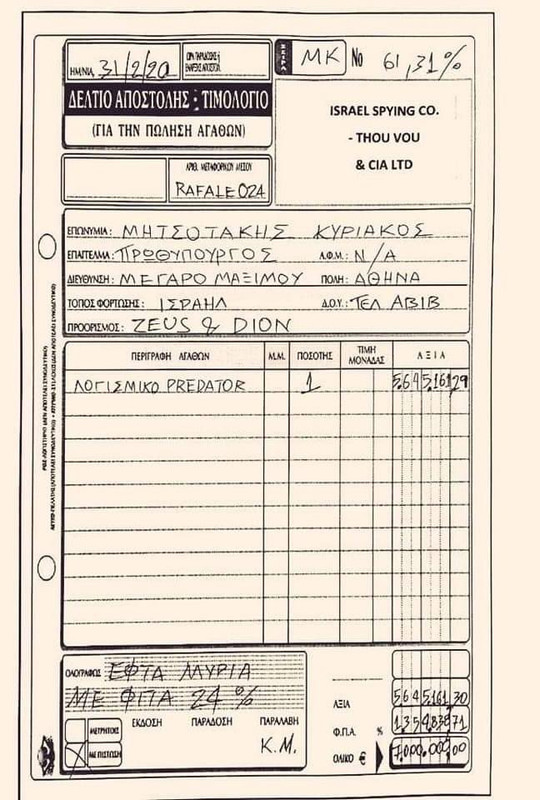 ΗΜ/ΝΙΑ 31/2/20
ΩΡΑ ΠΑΡΑΔΟΣΗΣ ή
ΕΝΑΡΞΗΣ ΑΠΟΣΤΟΛ.
ΣΕΙΡΑ MK No 61,31%
ΔΕΛΤΙΟ ΑΠΟΣΤΟΛΗΣ - ΤΙΜΟΛΟΓΙΟ
(ΓΙΑ ΤΗΝ ΠΩΛΗΣΗ ΑΓΑΘΩΝ)
ISRAEL SPYING CO.
- THOU VOU
& CIA LTD
ΑΡΙΘ. ΜΕΤΑΦΟΡΙΚΟΥ ΜΕΣΟΥ
RAFALE 024
ΕΠΩΝΥΜΙΑ: ΜΗΤΣΟΤΑΚΗΣ ΚΥΡΙΑΚΟΣ
ΕΠΑΓΓΕΛΜΑ: ΠΡΩΘΥΠΟΥΡΓΟΣ Α.Φ.Μ.: N/A
ΔΙΕΥΘΥΝΣΗ: ΜΕΓΑΡΟ ΜΑΞΙΜΟΥ ΠΟΛΗ: ΑΘΗΝΑ
ΤΟΠΟΣ ΦΟΡΤΩΣΗΣ: ΙΣΡΑΗΛ Δ.Ο.Υ.: ΤΕΛ ΑΒΙΒ
ΠΡΟΟΡΙΣΜΟΣ: ZEUS & DION
ΠΕΡΙΓΡΑΦΗ ΑΓΑΘΩΝ Μ.Μ. ΠΟΣΟΤΗΣ ΤΙΜΗ ΜΟΝΑΔΑΣ ΑΞΙΑ
ΛΟΓΙΣΜΙΚΟ PREDATOR 1 5.645.161,29
ΟΛΟΓΡΑΦΩΣ ΕΦΤΑ ΜΥΡΙΑ
ΜΕ ΦΠΑ 24 %
ΜΕΤΡΗΤΟΙΣ
ΜΕ ΠΙΣΤΩΣΗ
ΕΚΔΟΣΗ ΠΑΡΑΔΟΣΗ ΠΑΡΑΛΑΒΗ
Κ.Μ.
ΑΞΙΑ 5645.161 30
Φ.Π.Α. % 1.354.838 71
ΟΛΙΚΟ € 7.000.000,00